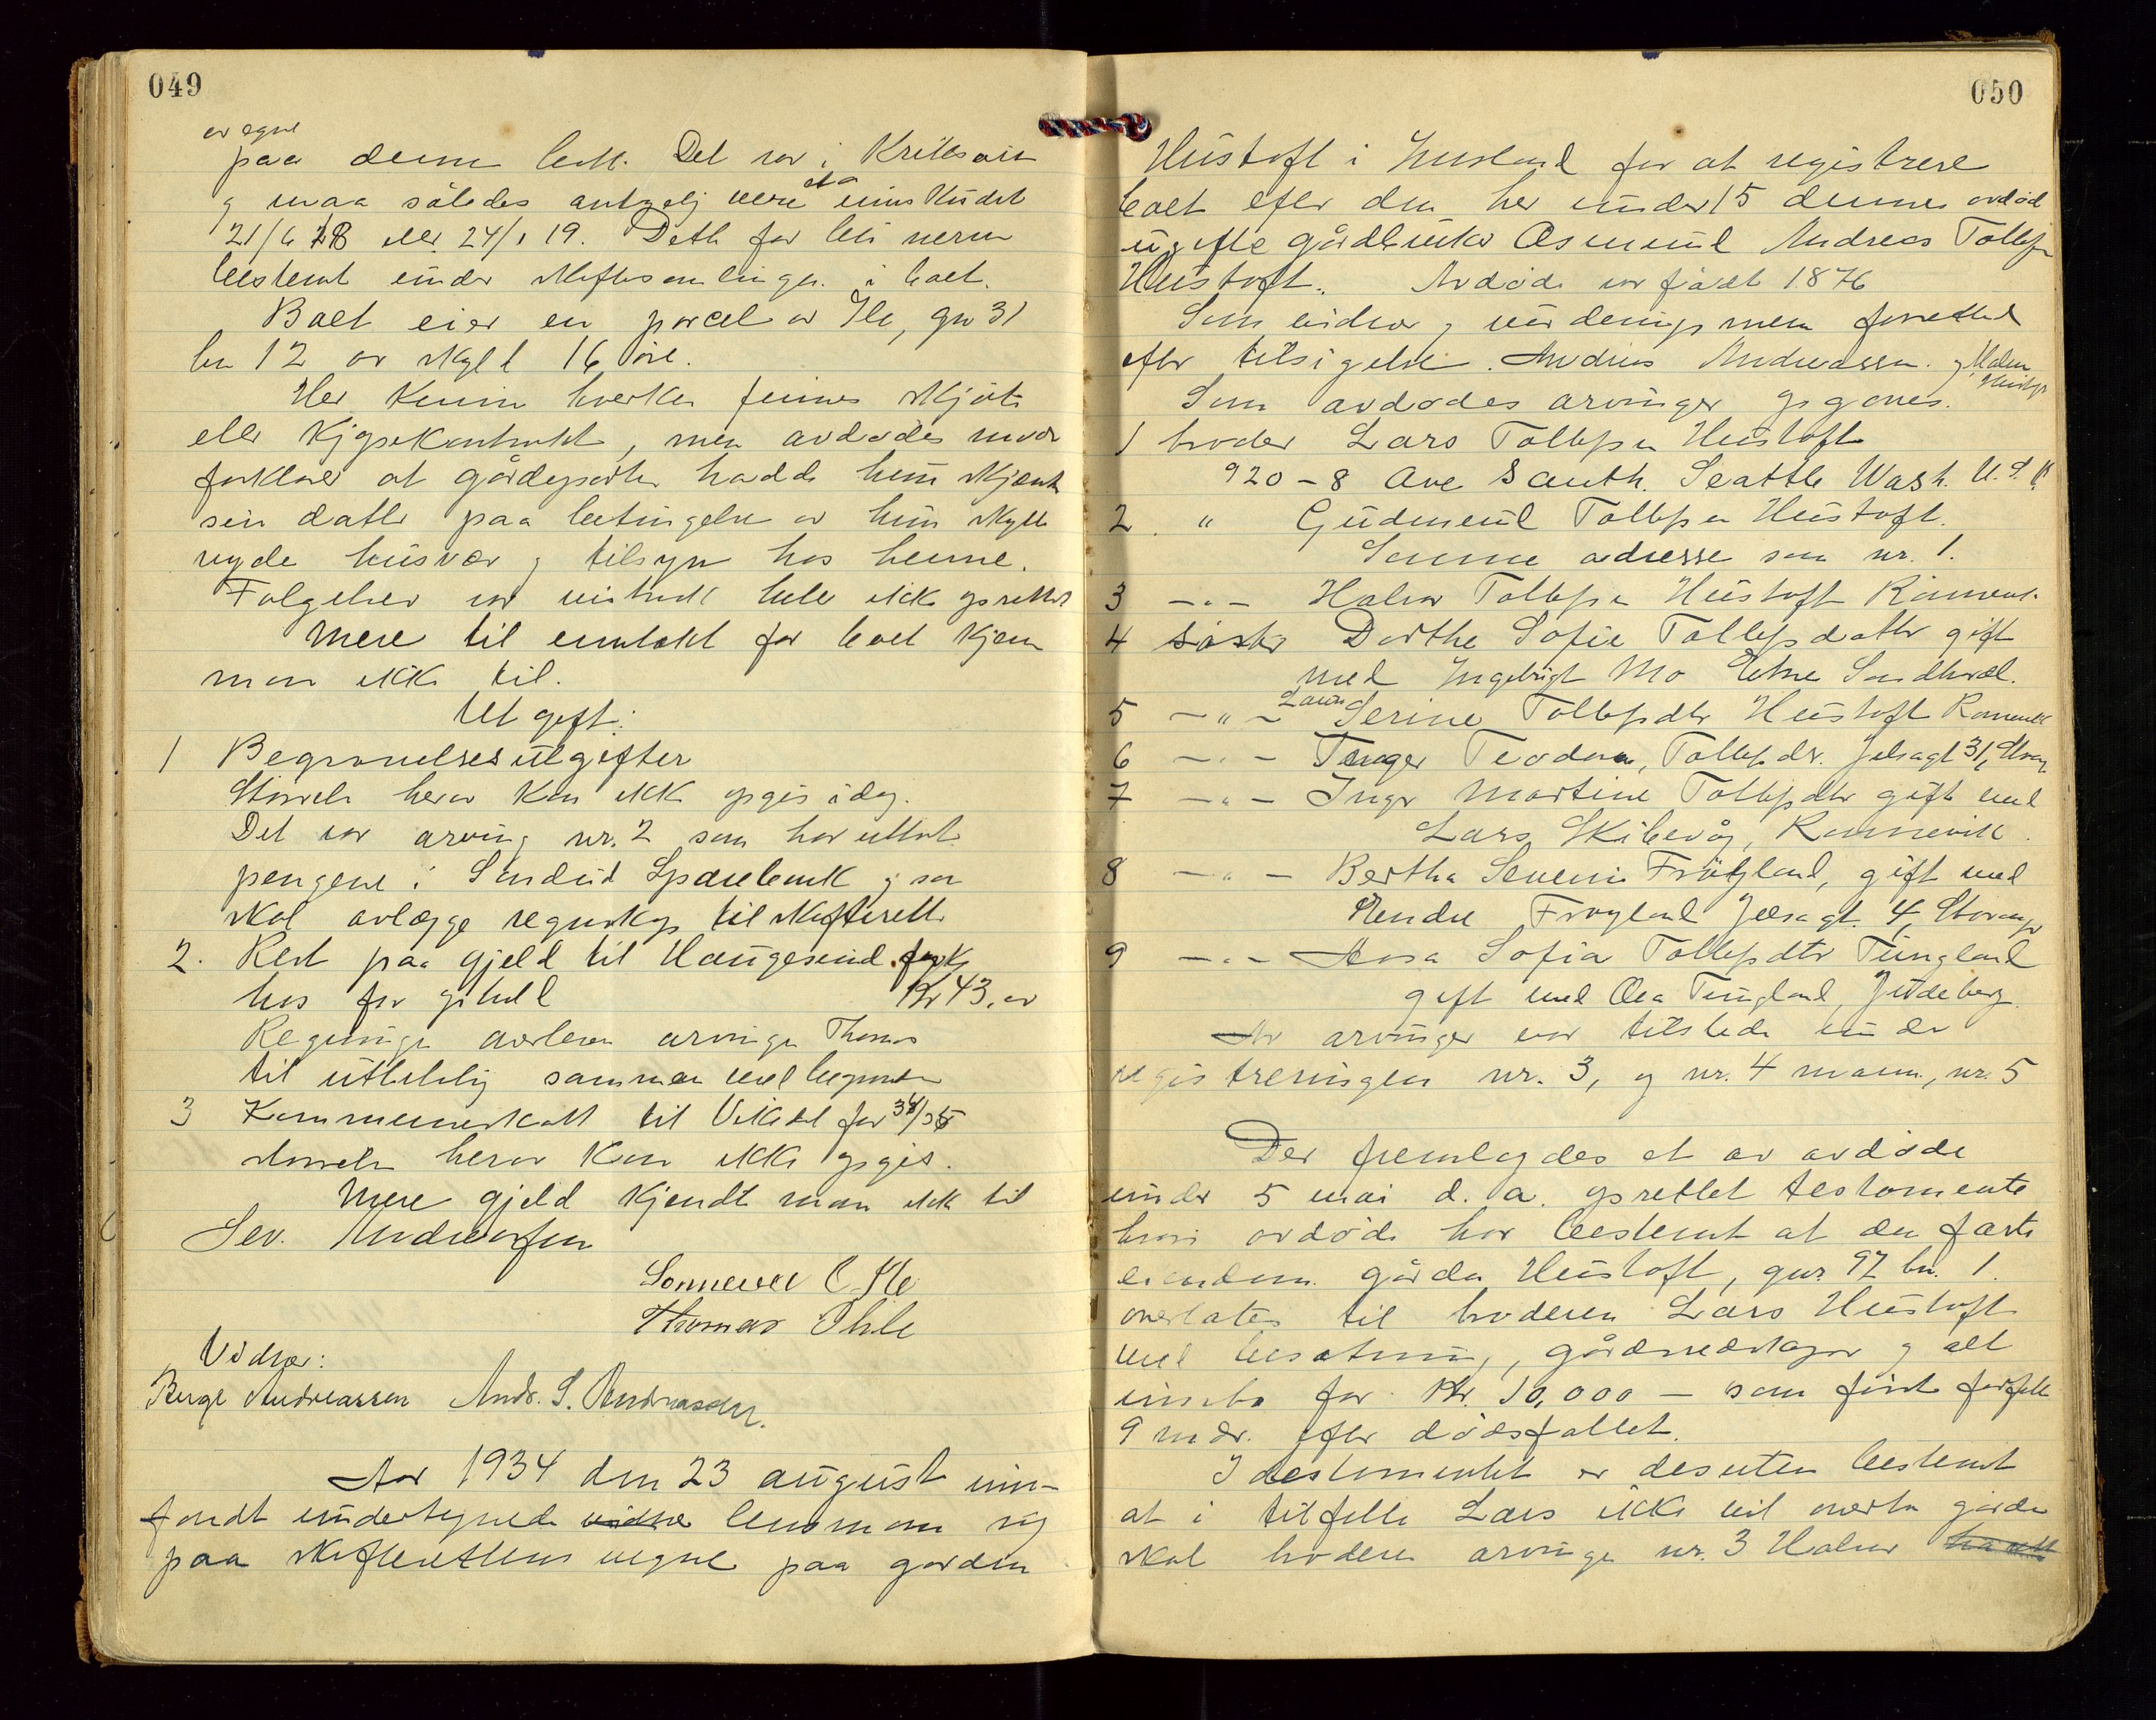 049
av egne
paa denne bank. Det var i Kriksair
og maa således antagelig være eta innskudet
21/6 18 eller 24/1 19. Dette får bli nermere
bestemt under skiftesamlingen i boet.
Boet eier en parcel av Ile, gnr 31
bn 12 av skyld 16 øre.
Her kunne hverken finnes skjøte
eller kjøpekontrakt, men avdødes mor
forklarer at gårdeparten hadde hun skjenket
sin datter paa betingelse av hun skulde
nyde husvær og tilsyn hos henne.
Følgebrev var vistnok heller ikke oprettet
Mere til inntekt for boet kjenner
man ikke til.
Utgift:
1 Begravelsesutgifter
Størrelsen herav kan ikke opgis idag.
Det var arving nr. 2 som har uttatt
pengene i Sandeid Sparebank og som
skal avlegge regnskap til skifteretten
2. Rest paa gjeld til Haugesund syke
hus for ophold Kr 43, av
Regninge averleveres arvinge Thomas
til utbetaling sammen med begravelsen
3 Kommuneskatt til Vikedal for 34/35
størrelsen herav kan ikke opgis.
Mere gjeld kjendte man ikke til
Sev. Andreassen
Sonneve O Ile
Thomas Ihle
Vidner:
Berge Andreassen Andr. S. Andreassen.
Aar 1934 den 23 august inn-
fandt undertegnede vidne lensmann sig
paa skifterettens vegne paa garden
050
Hustoft i Imsland for at registrere
boet efter den her under 15 dennes avdød
ugifte gårdbruker Asmund Andreas Tollefsen
Hustoft. Avdøde var født 1876
Som vidner og vurderingsmenn forrettet
efter tilsigelse. Andreas Andreassen. og Malm
Hustoft
Som avdødes arvinger opgaves.
1 broder Lars Tollefsen Hustoft
920 - 8 Ave South. Seattle Wash. U.S.A.
2 " Gudmund Tollefsen Hustoft.
Samme adresse som nr. 1.
3 -"- Halvor Tollefsen Hustoft Ropmeids
4 søster Dorthe Sofie Tollefsdatter gift
med Ingebrigt Mo Etne Søndhorl.
5 -"- Laura Serine Tollefsdtr Hustoft
6 -"- Inger Teodora, Tollefsdr. Jelsagt 31, Stvgr
7 -"- Inger Martine Tollefsdtr gift med
Lars Skibevåg, Ropmeids.
8 -"- Bertha Severine Frøyland, gift med
Endre Frøyland Jelsagt. 4, Stavanger
9 -"- Anna Sofia Tollefsdtr Tungland
gift med Ola Tungland, Judeberg.
Av arvinger var tilstede under
registreringen nr. 3, og nr. 4 mann, nr. 5
Der fremlagdes et av avdøde
under 5 mai d. a. oprettet testamente
hvori avdøde har bestemt at den faste
eiendom gården Hustoft, gnr. 97 bn. 1.
overlates til broderen Lars Hustoft
med besetning, gårdsredskaper og alt
innbo for Kr. 10,000 - som først forfalder
9 mdr. efter dødsfallet.
I testamentet er desuten bestemt
at i tilfelle Lars ikke vil overta gården
skal broderen arvinge nr. 3 Halvor ha rett